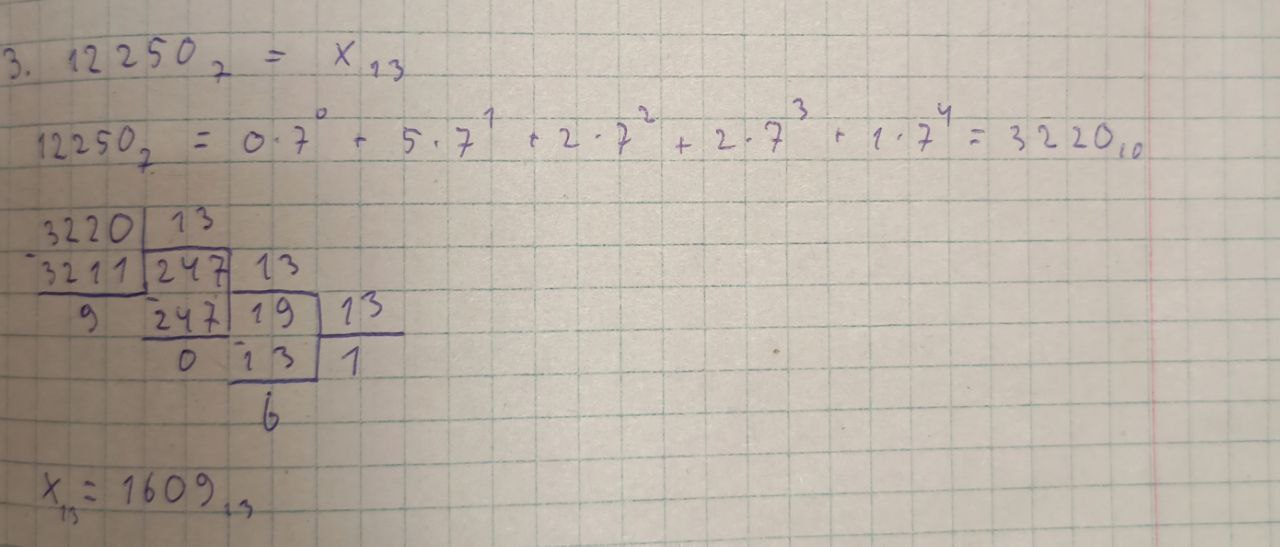 3. 12250₇ = x₁₃
12250₇ = 0·7⁰ + 5·7¹ + 2·7² + 2·7³ + 1·7⁴ = 3220₁₀
3220 13
-3211 247 13
9 -247 19 13
0 -13 1
6
x₁₃ = 1609₁₃